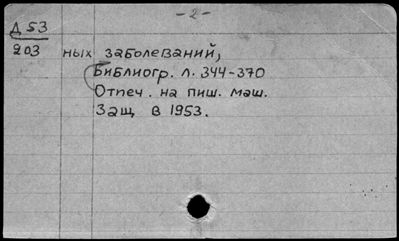 -2-
Д 53
203 ных заболеваний,
Библиогр. л. 344-370
Отпеч. на пиш. маш.
Защ в 1953.